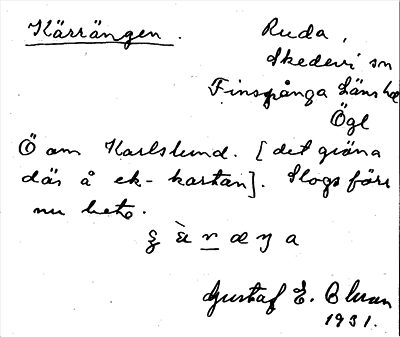 Kärrängen.
Ruda,
Skedevi sn
Finspånga länshd
Ögl
Ö om Karlslund. [det gröna
där å ek-kartan]. Slogs förr
nu bete.
Gustaf E. Blman
1931.